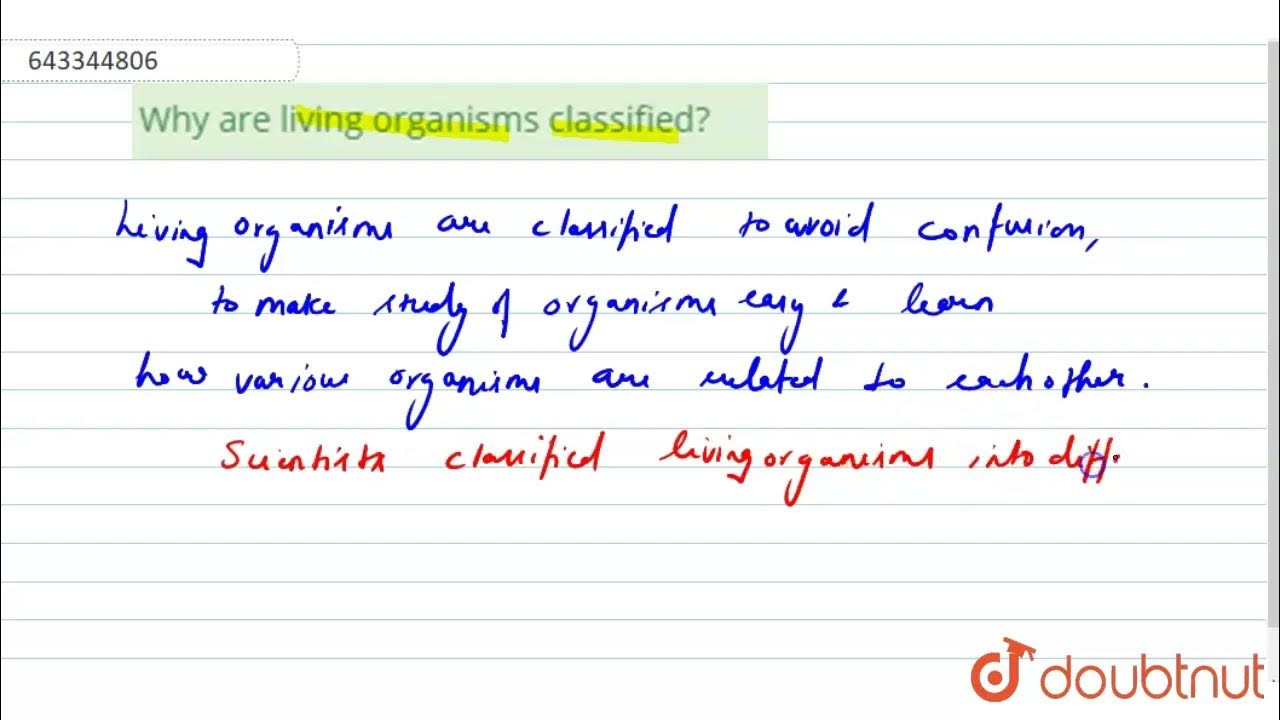 643344806
Why are living organisms classified?
Living organisms are classified to avoid confusion,
to make study of organisms easy & learn
how various organisms are related to each other.
Scientists classified living organisms into diff.
doubtnut